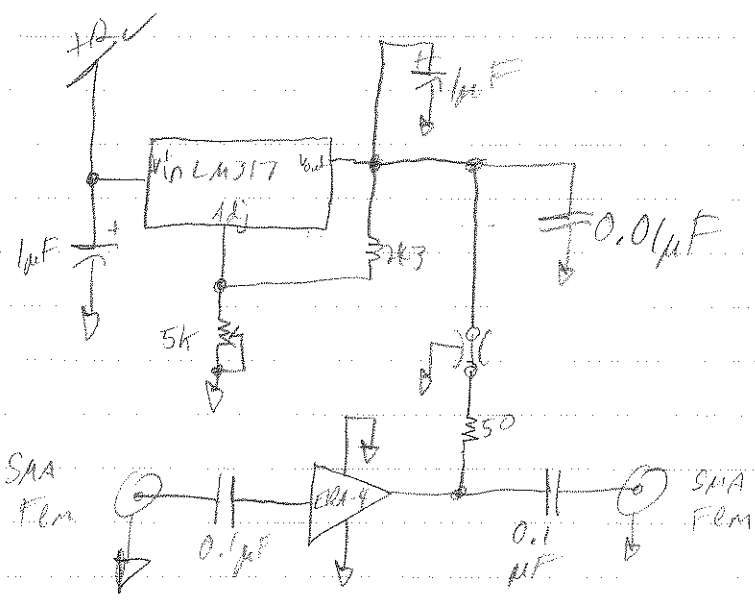 +12v
1µF
Vin LM317 Vout
Adj
1µF
0.01µF
5k
50
SMA
Fem
0.1µF
ERA-4
0.1
µF
SMA
Fem